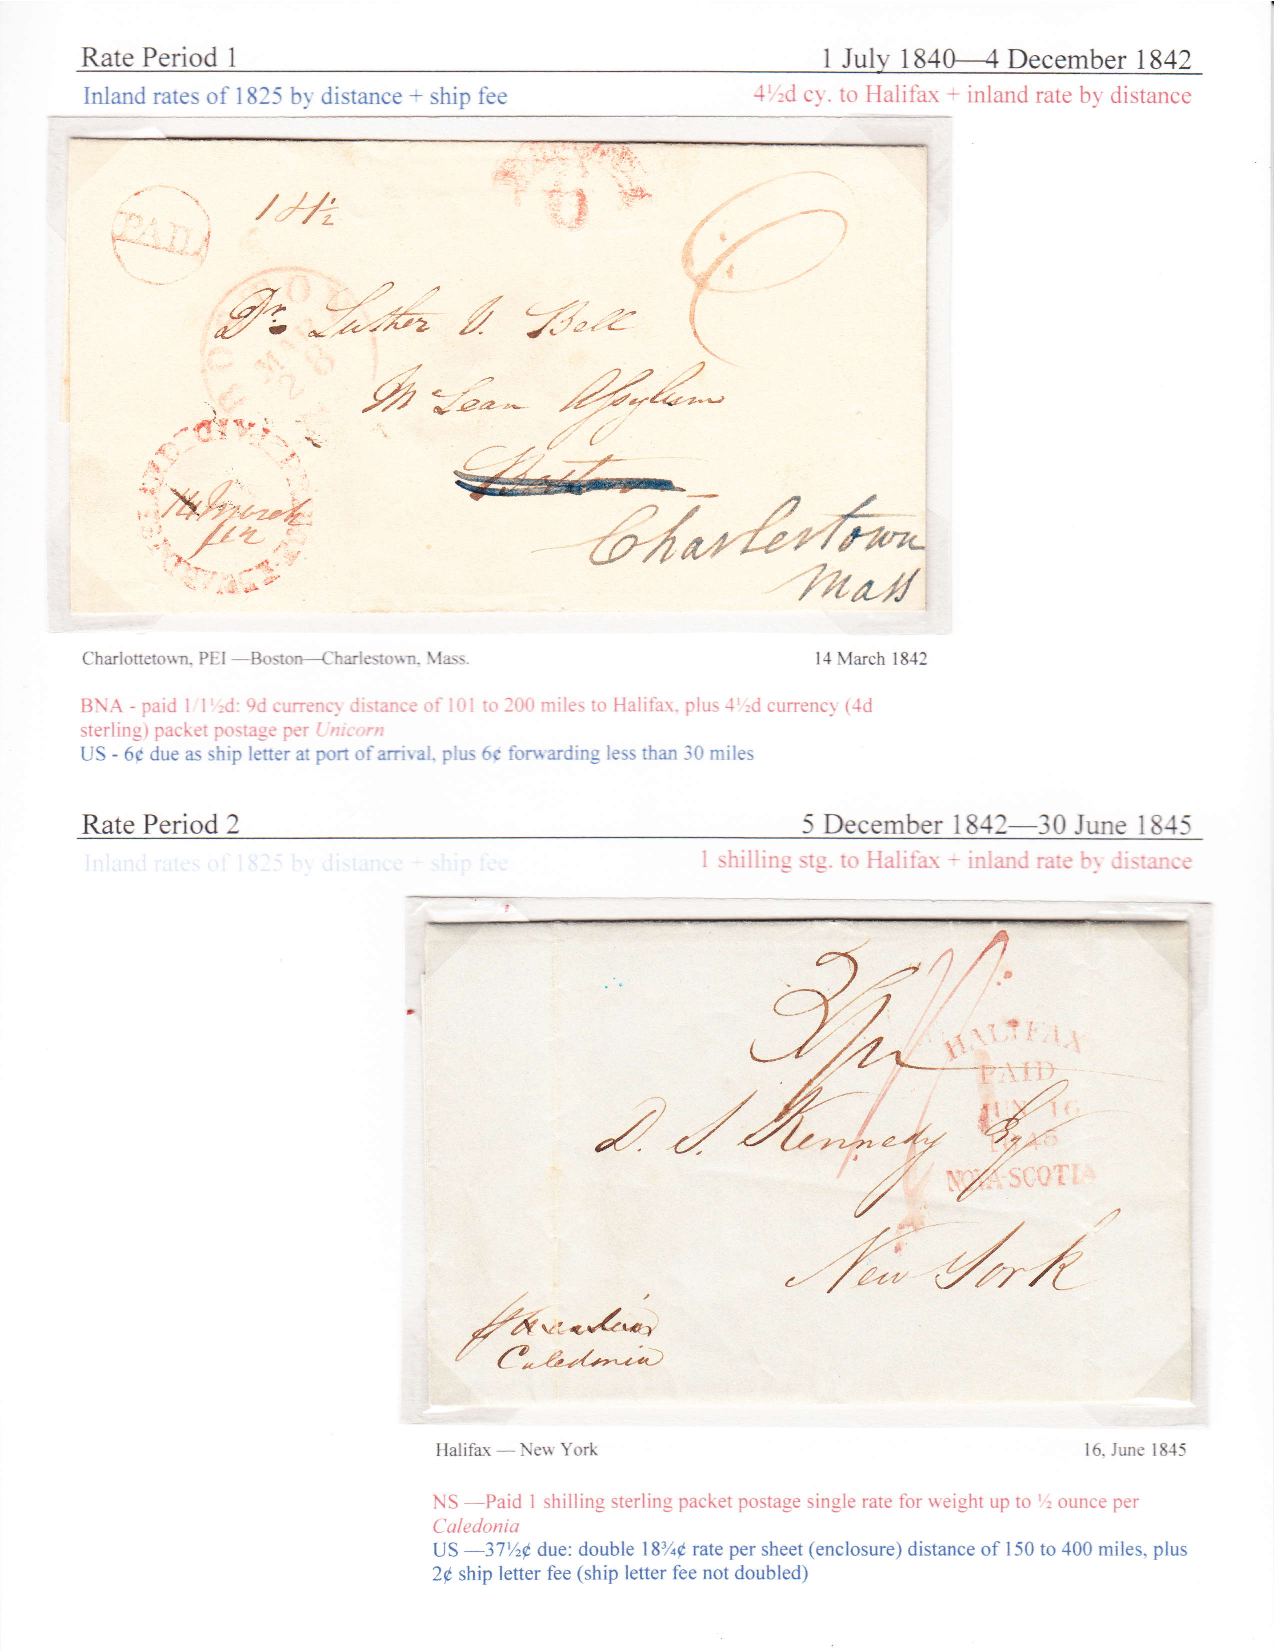 Rate Period 1 1 July 1840—4 December 1842
Inland rates of 1825 by distance + ship fee 4½d cy. to Halifax + inland rate by distance
PAID
1
U
6
BOSTON
MAR
28
Dr. Luther V. Bell
McLean Asylum
Boston
PAID PRINCE EDWARD ISLAND
14 March
Charlestown
Mass
Charlottetown, PEI —Boston—Charlestown, Mass. 14 March 1842
BNA - paid 1/1½d: 9d currency distance of 101 to 200 miles to Halifax, plus 4½d currency (4d
sterling) packet postage per Unicorn
US - 6¢ due as ship letter at port of arrival, plus 6¢ forwarding less than 30 miles
Rate Period 2 5 December 1842—30 June 1845
Inland rates of 1825 by distance + ship fee 1 shilling stg. to Halifax + inland rate by distance
HALIFAX
PAID
JUN 16
1845
NOVA-SCOTIA
D. S. Kennedy Esq
New York
Caledonia
Halifax — New York 16, June 1845
NS —Paid 1 shilling sterling packet postage single rate for weight up to ½ ounce per
Caledonia
US —37½¢ due: double 18¾¢ rate per sheet (enclosure) distance of 150 to 400 miles, plus
2¢ ship letter fee (ship letter fee not doubled)